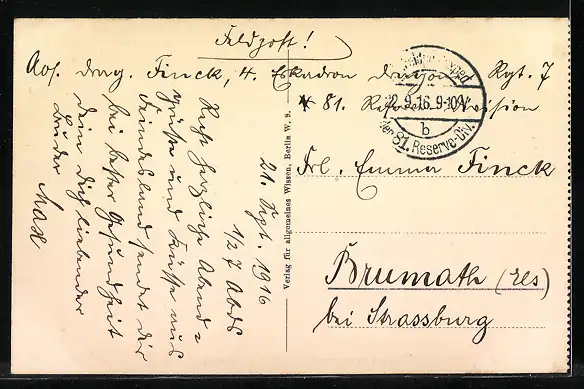 Feldpost!
Abs. Drag. Finck, 4. Eskadron Dragon. Rgt. 7
81. Reserve Division
2.9.16.9-10V.
b
der 81. Reserve-Div.
Frl. Emma Finck
Brumath (Els)
bei Strassburg
Verlag für allgemeines Wissen, Berlin W. 9.
21. Sept. 1916
1/2 7 Abds
Recht herzliche Abend=
grüße und Küsse aus
Feindesland sendet dir
bei bester Gesundheit
dein dich liebender
Bruder Max